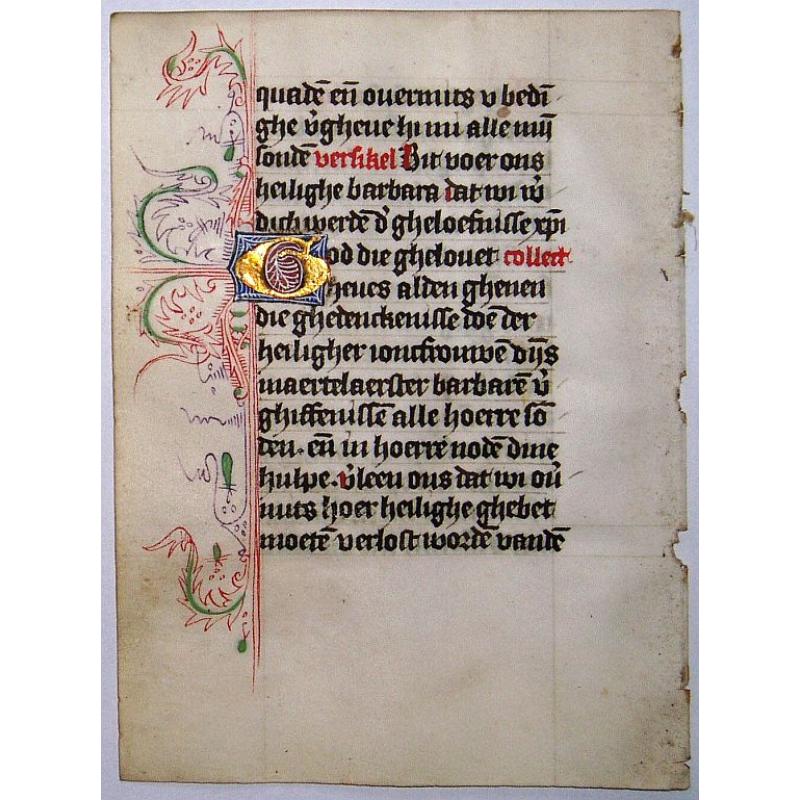 quadē eñ ouermits v bedī
ghe v̾gheue hi mi alle mijn
sondē versikel Bit voer ons
heilighe barbara dat wi w̾
dich werdē d̾ gheloefnisse xp̄i
God die ghelouet collect
heues alden ghenen
die ghedenckenisse doē der
heiligher ioncfrouwē dijns
maertelaerster barbarē v̾
ghiffenissē alle hoerre sō
den. eñ in hoerre nodē dine
hulpe. v̾leen ons dat wi ou̾
mits hoer heilighe ghebet
moetē verlost wordē vandē